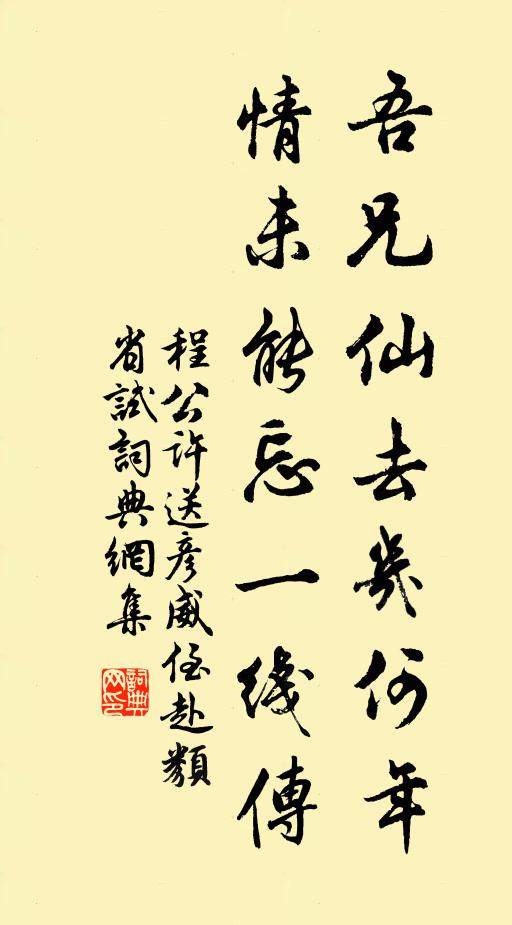 吾兄仙去幾何年
情未能忘一綫傳
程公許送彥威侄赴類
省試詞典網集
詞典網印